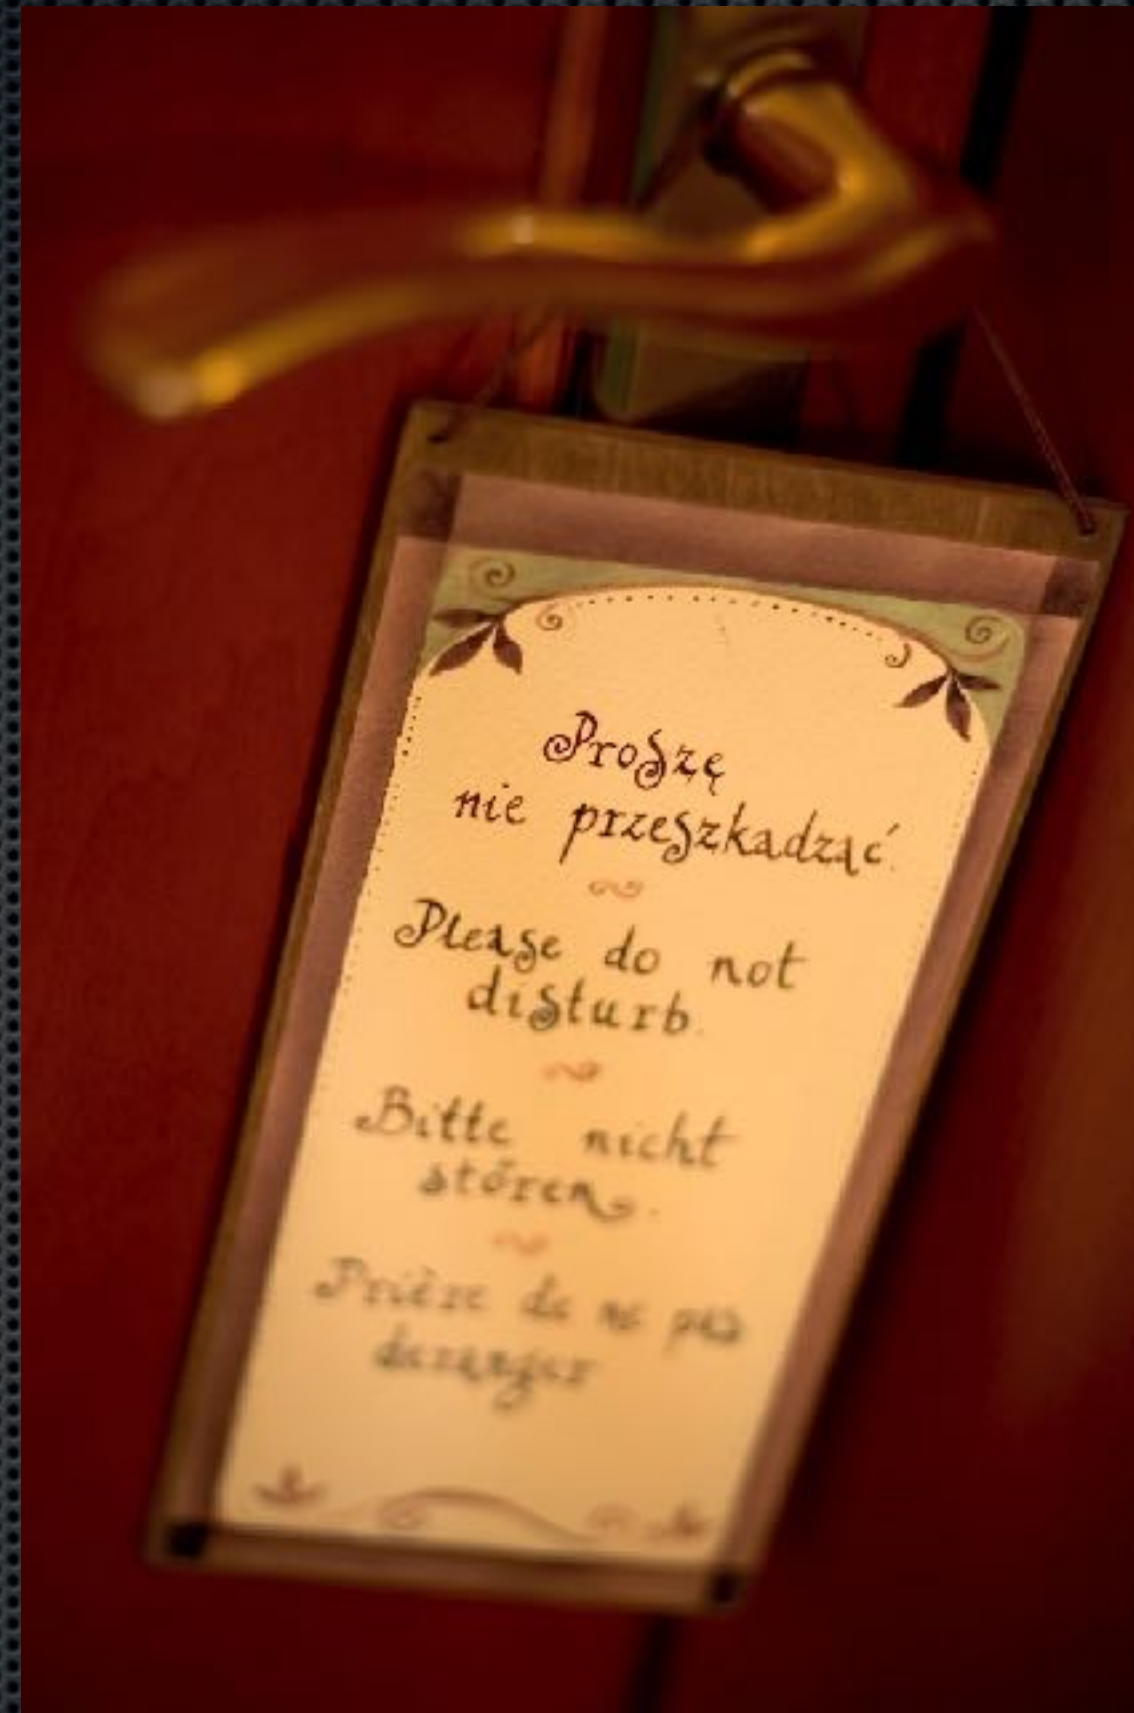 Proszę
nie przeszkadzać.
Please do not
disturb.
Bitte nicht
stören.
Prière de ne pas
deranger